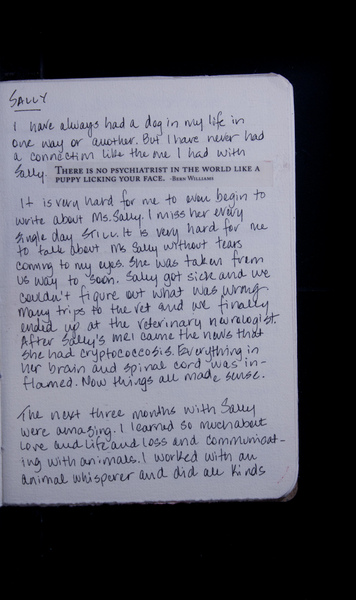 SALLY
I have always had a dog in my life in
one way or another. But I have never had
a connection like the one I had with
Sally. THERE IS NO PSYCHIATRIST IN THE WORLD LIKE A
PUPPY LICKING YOUR FACE. -BERN WILLIAMS
It is very hard for me to even begin to
write about Ms. Sally. I miss her every
single day STILL. It is very hard for me
to talk about Ms Sally without tears
coming to my eyes. She was taken from
us way to soon. Sally got sick and we
couldn't figure out what was wrong.
Many trips to the vet and we finally
ended up at the veterinary neurologist.
After Sally's MRI came the news that
she had cryptococcosis. Everything in
her brain and spinal cord was in-
flamed. Now things all made sense.
The next three months with Sally
were amazing. I learned so much about
love and life and loss and communicat-
ing with animals. I worked with an
animal whisperer and did all kinds